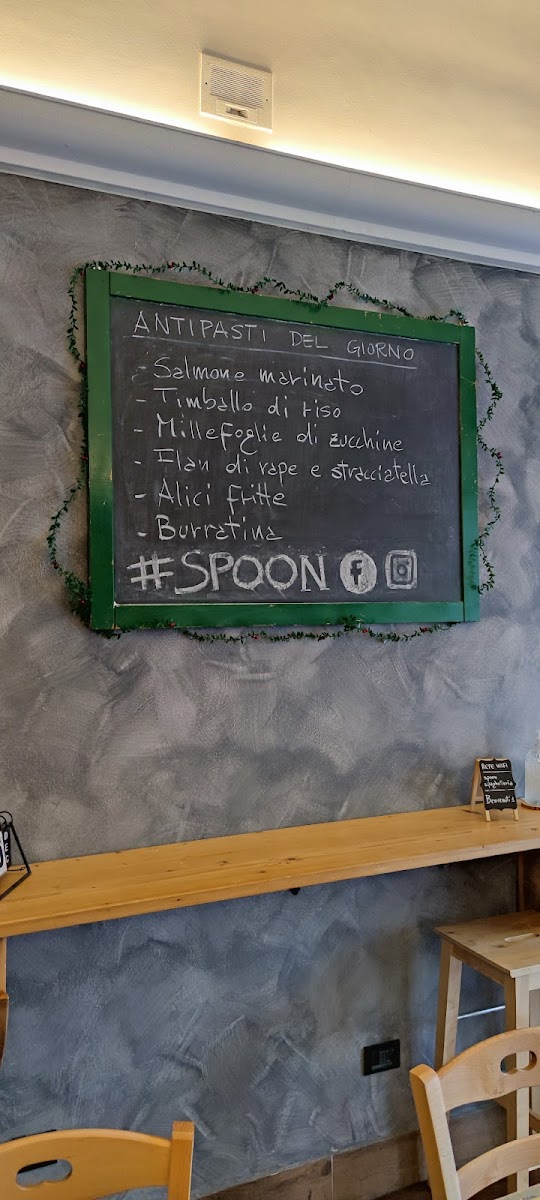 ANTIPASTI DEL GIORNO
- Salmone marinato
- Timballo di riso
- Millefoglie di zucchine
- Flan di rape e stracciatella
- Alici fritte
- Burratina
#SPOON f
RETE WIFI
spoon
Benvenuti